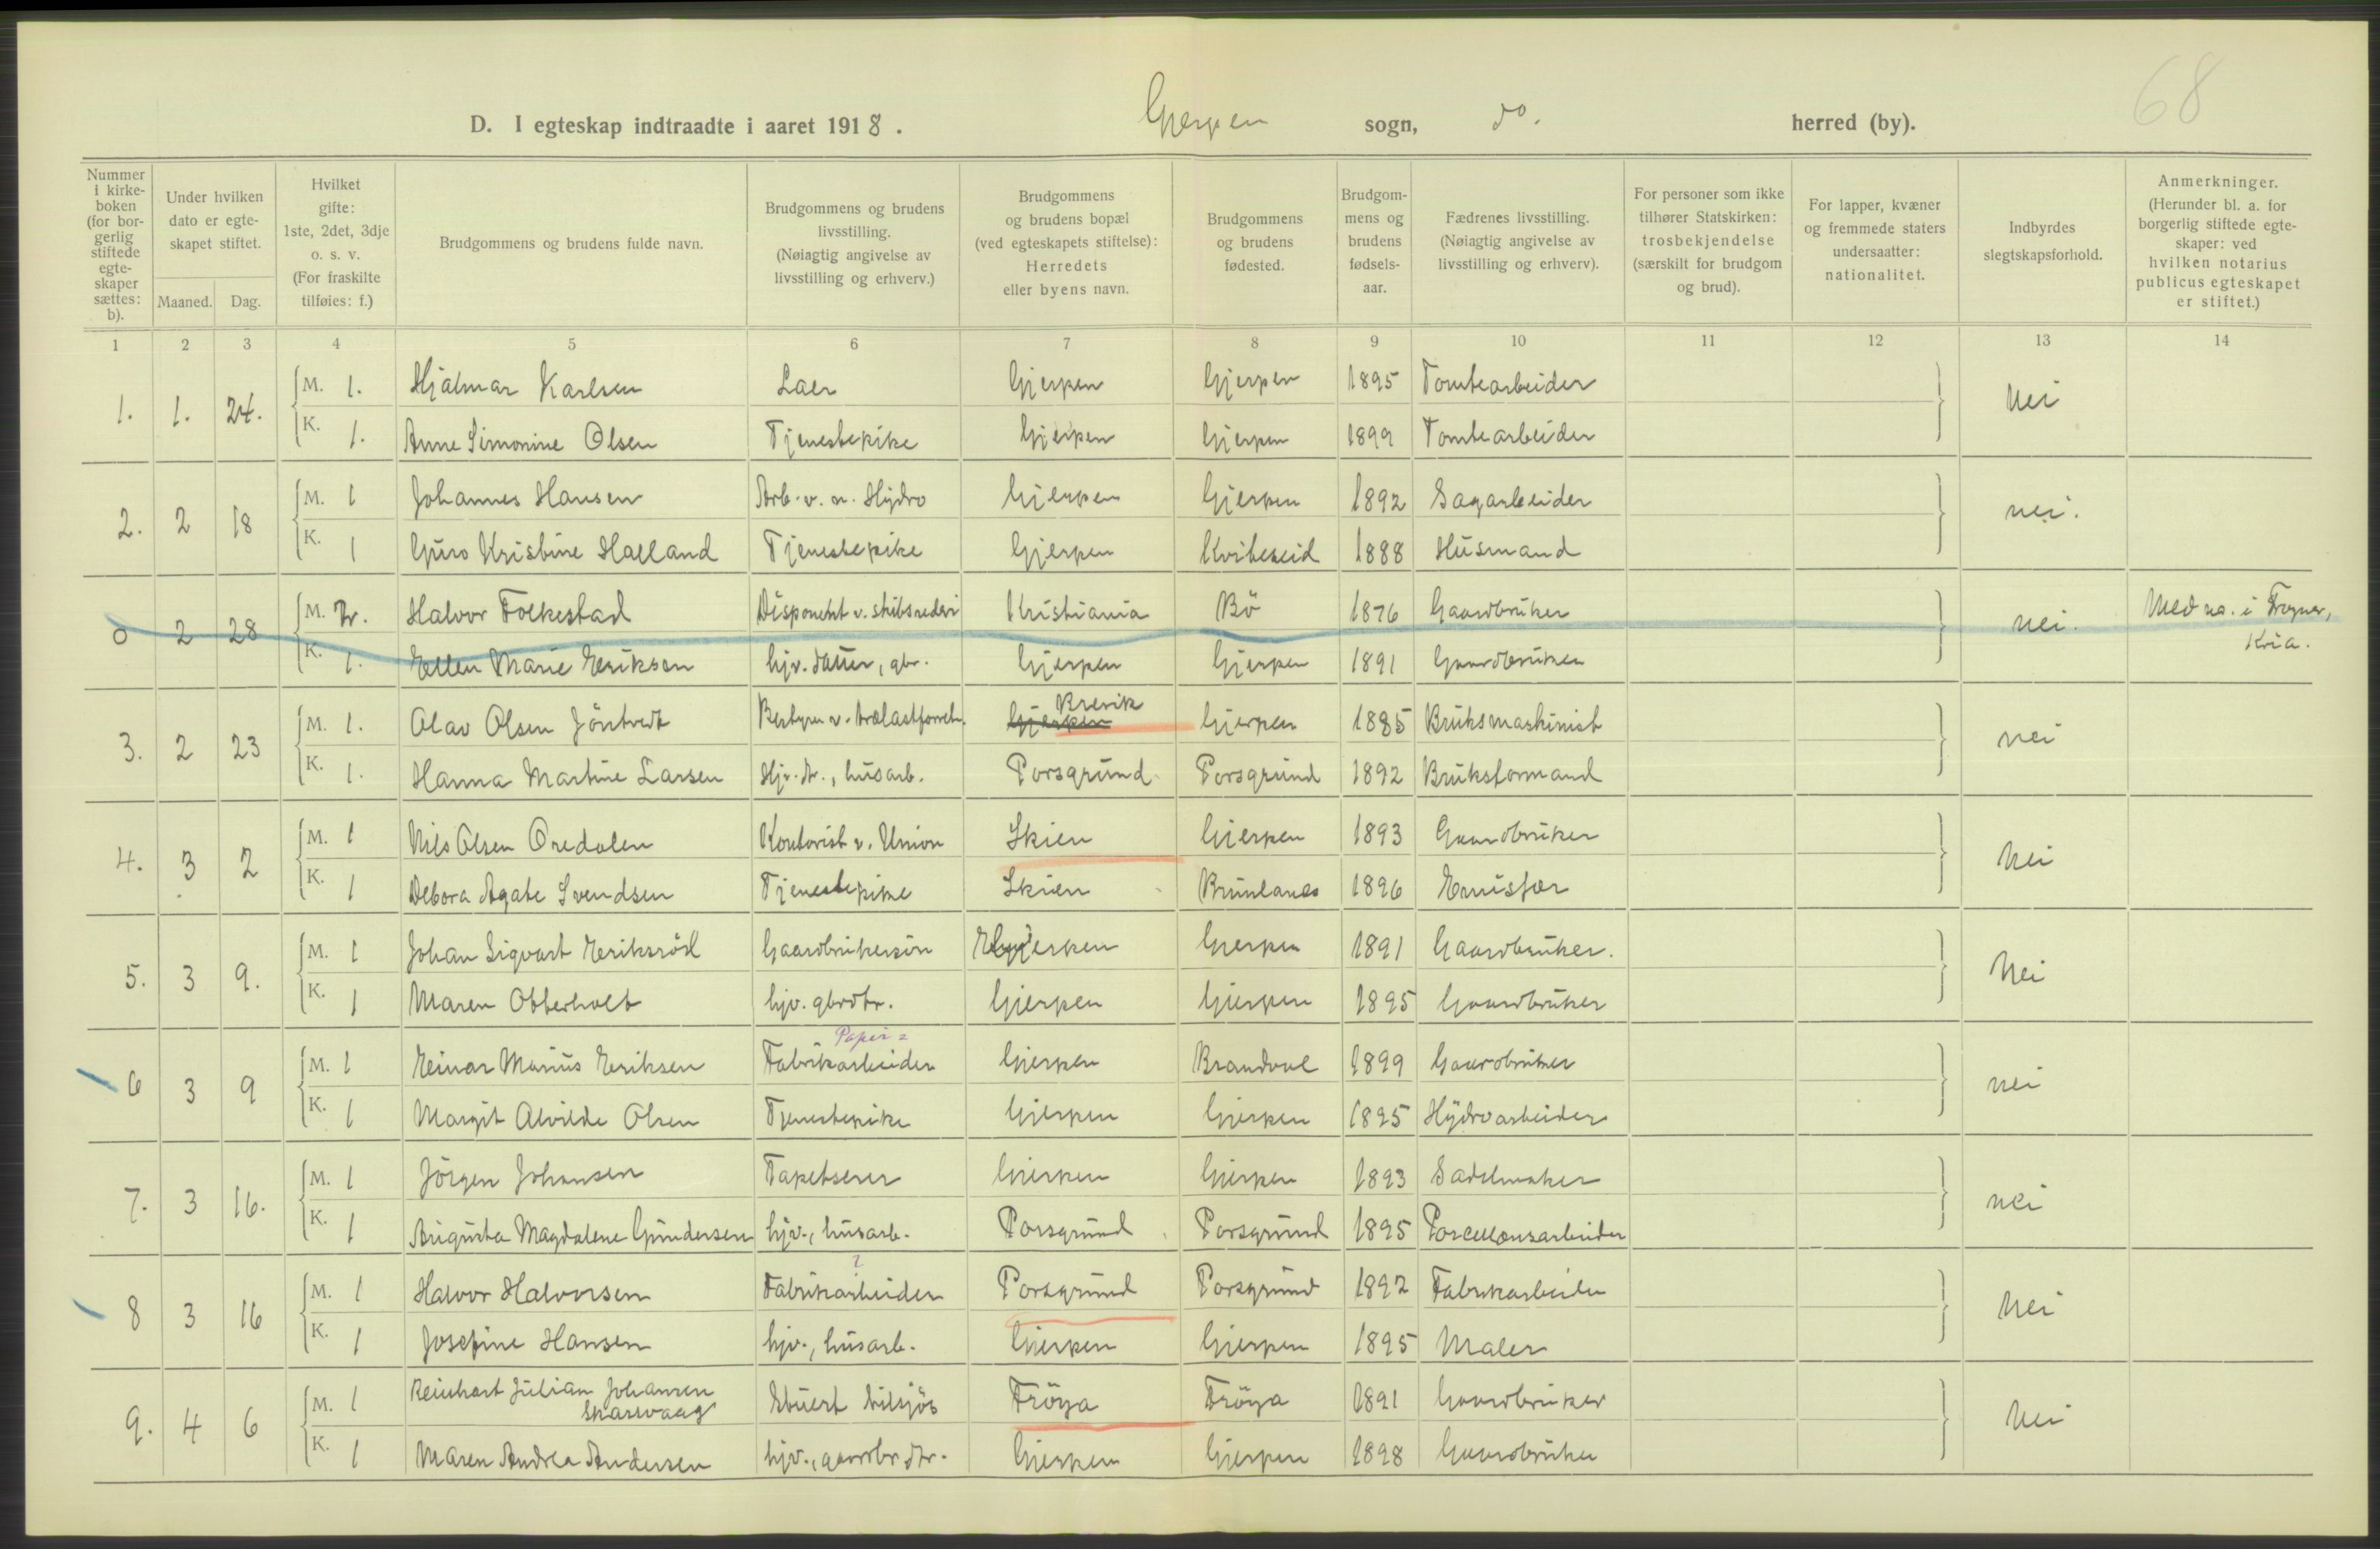 68
D. I egteskap indtraadte i aaret 1918. Gjerpen sogn, do. herred (by).
Nummer i kirkeboken (for borgerlig stiftede egteskaper sættes: b).
Under hvilken dato er egteskapet stiftet.
Maaned. Dag.
Hvilket gifte: 1ste, 2det, 3dje o. s. v. (For fraskilte tilføies: f.)
Brudgommens og brudens fulde navn.
Brudgommens og brudens livsstilling. (Nøiagtig angivelse av livsstilling og erhverv.)
Brudgommens og brudens bopæl (ved egteskapets stiftelse): Herredets eller byens navn.
Brudgommens og brudens fødested.
Brudgommens og brudens fødselsaar.
Fædrenes livsstilling. (Nøiagtig angivelse av livsstilling og erhverv).
For personer som ikke tilhører Statskirken: trosbekjendelse (særskilt for brudgom og brud).
For lapper, kvæner og fremmede staters undersaatter: nationalitet.
Indbyrdes slegtskapsforhold.
Anmerkninger. (Herunder bl. a. for borgerlig stiftede egteskaper: ved hvilken notarius publicus egteskapet er stiftet.)
1 2 3 4 5 6 7 8 9 10 11 12 13 14
1. 1. 24. M. 1. Hjalmar Karlsen Laer Gjerpen Gjerpen 1895 Tomtearbeider Nei
K. 1. Anne Simonine Olsen Tjenestepike Gjerpen Gjerpen 1899 Tomtearbeider
2. 2 18 M. 1 Johannes Hansen Arb. v. n. Hydro Gjerpen Gjerpen 1892 Sagarbeider nei.
K. 1 Guro Kristine Haaland Tjenestepike Gjerpen Kviteseid 1888 Husmand
0 2 28 M. Halvor Folkestad Disponent v. skibsrederi Kristiania Bö 1876 Gaardbruker nei. Med no. i Frogner, Kria.
K. 1. Ellen Marie Eriksen hjv. datter, gbr. Gjerpen Gjerpen 1891 Gaardbruker
3. 2 23 M. 1. Olav Olsen Jöntvedt Bestyrer v. trælastforretn. Gjerpen Brevik Gjerpen 1885 Bruksmaskinist nei
K. 1. Hanna Martine Larsen Hjv. dtr., husarb. Porsgrund Porsgrund 1892 Bruksformand
4. 3 2 M. 1 Nils Olsen Oredalen Kontorist v. Union Skien Gjerpen 1893 Gaardbruker Nei
K. 1 Debora Agate Svendsen Tjenestepike Skien Brunlanes 1896 Emissær
5. 3 9. M. 1 Johan Sigvart Eriksröd Gaardbrukersön Gjerpen Gjerpen 1891 Gaardbruker. Nei
K. 1 Maren Otterholt hjv. gbrdtr. Gjerpen Gjerpen 1895 Gaardbruker
6 3 9 M. 1 Einar Marius Eriksen Papir= Fabrikarbeider Gjerpen Brandval 1899 Gaardbruker nei
K. 1 Margit Alvilde Olsen Tjenestepike Gjerpen Gjerpen 1895 Hydroarbeider
7. 3 16. M. 1 Jörgen Johansen Tapetserer Gjerpen Gjerpen 1893 Sadelmaker nei
K. 1 Augusta Magdalene Gundersen hjv., husarb. Porsgrund Porsgrund 1895 Porcellænsarbeider
8 3 16 M. 1 Halvor Halvorsen ? Fabrikarbeider Porsgrund Porsgrund 1892 Fabrikarbeider Nei
K. 1 Josefine Hansen hjv., husarb. Gjerpen Gjerpen 1895 Maler
9. 4 6 M. 1 Reinhart Julian Johansen Skarsvaag Stuert tilsjös Fröya Fröya 1891 Gaardbruker Nei
K. 1 Maren Andrea Andersen hjv., gaardbr. dtr. Gjerpen Gjerpen 1898 Gaardbruker